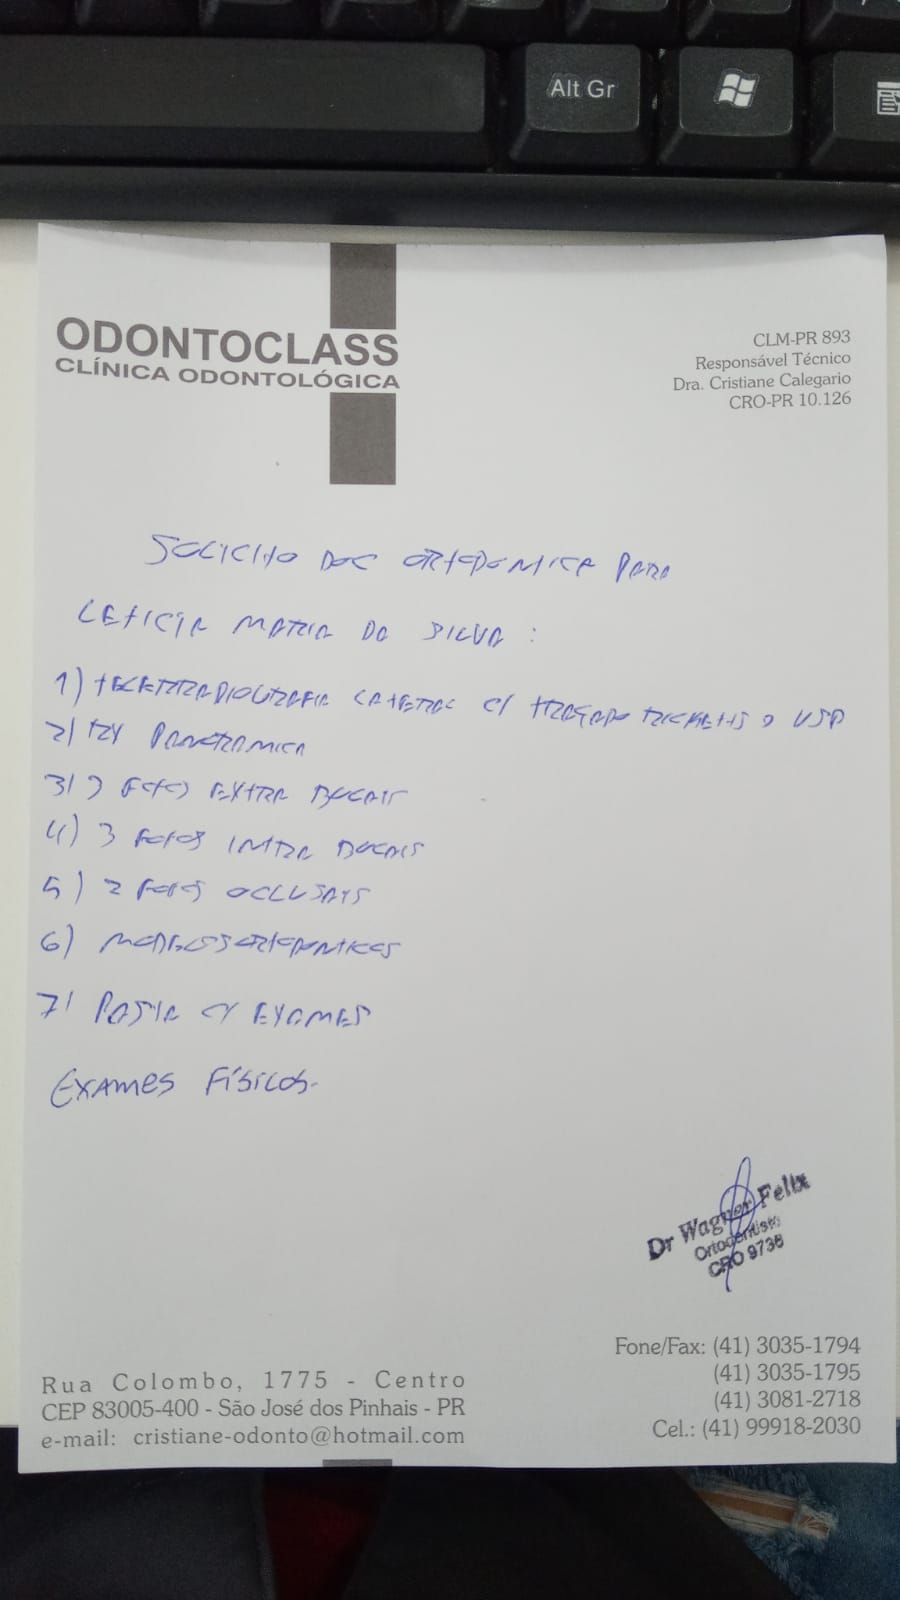 Alt Gr
ODONTOCLASS
CLÍNICA ODONTOLÓGICA
CLM-PR 893
Responsável Técnico
Dra. Cristiane Calegario
CRO-PR 10.126
SOLICITO DOC ORTODONTICA PARA
LETICIA MARIA DA SILVA :
1) TELERRADIOGRAFIA LATERAL C/ TRAÇADO RICKETTS USP
2) RX PANORAMICA
3) 3 FOTOS EXTRA BUCAIS
4) 3 FOTOS INTRA BUCAIS
5) 2 FOTOS OCLUSAIS
6) MODELOS ORTODONTICOS
7) PASTA C/ EXAMES
EXAMES FÍSICOS.
Dr Wagner Felix
Ortodontista
CRO 9736
Rua Colombo, 1775 - Centro
CEP 83005-400 - São José dos Pinhais - PR
e-mail: cristiane-odonto@hotmail.com
Fone/Fax: (41) 3035-1794
(41) 3035-1795
(41) 3081-2718
Cel.: (41) 99918-2030